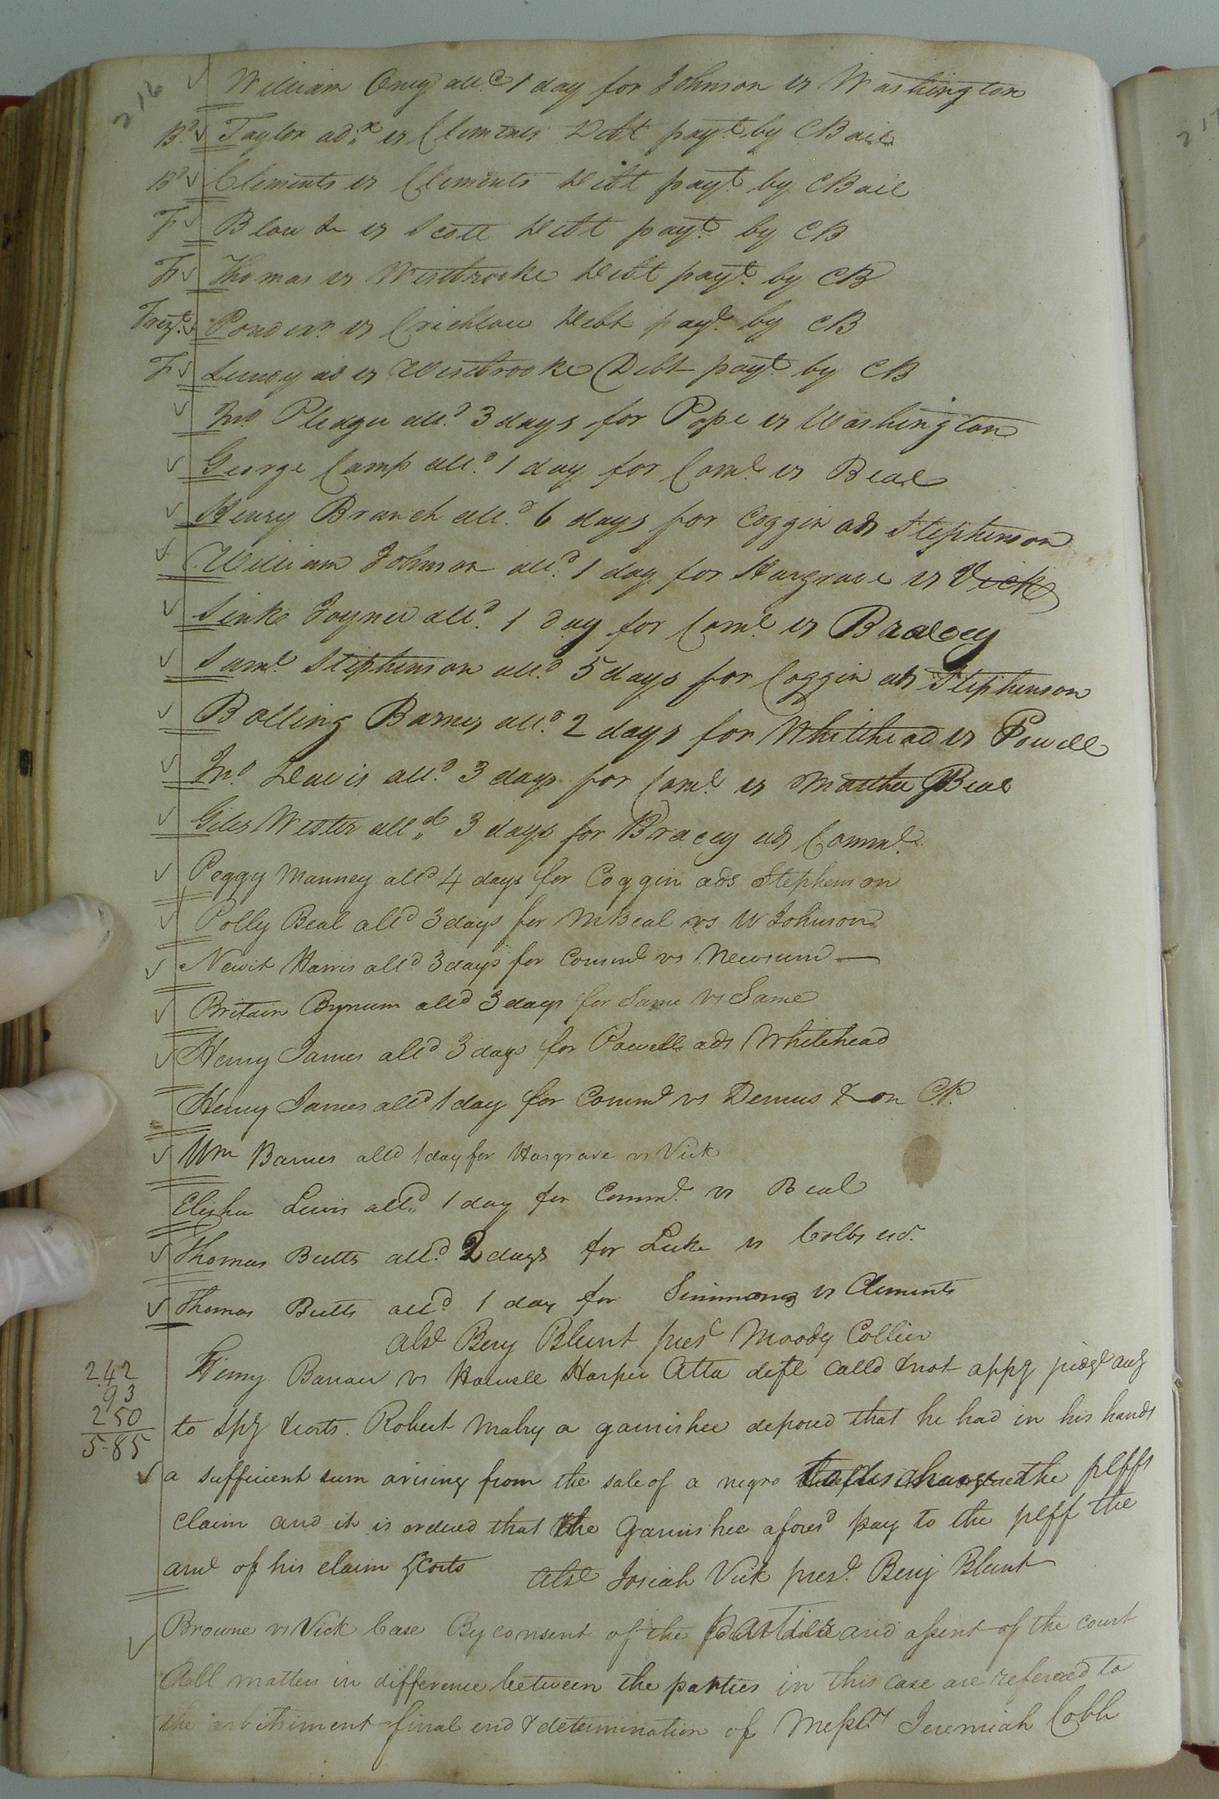 216
William all.d 1 day for Johnson vs Washington
B.d Taylor ad.x vs Clements Debt pay.t by CBail
B.d Clements vs Clements Debt pay.t by CBail
F Blow & vs Scott Debt pay.t by CB
F Thomas vs Westbrooke Debt pay.t by CB
Pond exr. vs Crichlow Debt pay.t by CB
F Lundy ad vs Westbrooke Debt pay.t by CB
Jno. Pledger all.d 3 days for Pope vs Washington
George Camp all.d 1 day for Com.l vs Beal
Henry Branch all.d 6 days for Coggin ads Stephenson
William Johnson all.d 1 day for Hargrave vs Vick
Joyner all.d 1 day for Com.l vs Bracey
Saml. Stephenson all.d 5 days for Coggin ads Stephenson
Bolling Barnes all.d 2 days for Whitehead vs Powell
Jno. Lewis all.d 3 days for Com.l vs Martha Beal
Giles Wester all.d 3 days for Bracey ads Comm.l
Peggy Manney alld 4 days for Coggin ads Stephenson
Polly Beal alld 3 days for M Beal vs W Johnson
Newit Harris alld 3 days for Comml vs Newsum
Britain Bynum alld 3 days for Same vs Same
Henry James alld 3 days for Powell ads Whitehead
Henry James alld 1 day for Comml vs Demus & on
Wm Barnes alld 1 day for Hargrave vs Vick
Elisha Lewis alld. 1 day for Comml. vs Beal
Thomas Butts alld. 2 days for Luke vs Cobbs
Thomas Butts alld. 1 day for Simmons vs Clements
Abst Benj Blunt prest Moody Collier
242
93
250
5.85
Henry Barrow vs Howell Harper Atta deft calld & not appg judgt
to spg & costs. Robert Mabry a garnishee deposed that he had in his hands
a sufficient sum arising from the sale of a negro to discharge the plffs
claim and it is ordered that the Garnishee aforesd pay to the plff the
amt of his claim & costs Abst Josiah Vick prest. Benj Blunt
Browne vs Vick Case By consent of the parties and assent of the court
All matters in difference between the parties in this case are refered to
the arbitriment final end & determination of Messrs Jeremiah Cobb